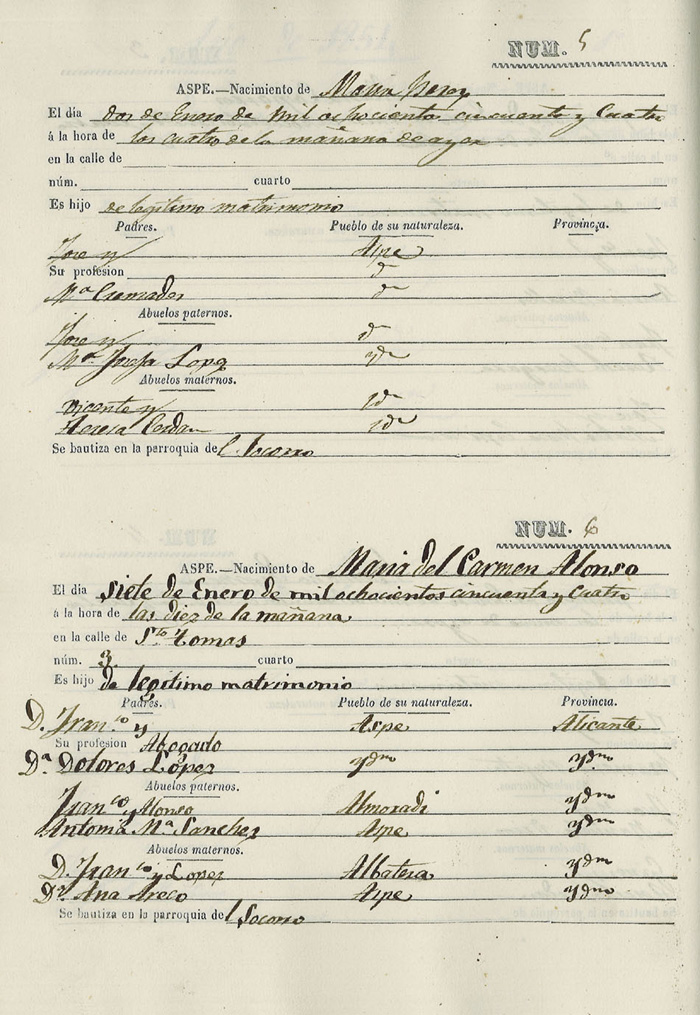 NUM. 5
ASPE.—Nacimiento de Maria Perez
El dia dos de Enero de mil ochocientos cincuenta y Cuatro
á la hora de las cuatro de la mañana de ayer
en la calle de
núm. cuarto
Es hijo de legitimo matrimonio
Padres. Pueblo de su naturaleza. Provincia.
Jose y Aspe
Su profesion
Mª Cremades
Abuelos paternos.
Jose y
Mª Josefa Lopez
Abuelos maternos.
Vicente y
Teresa Cerdan
Se bautiza en la parroquia del Socorro
NUM. 6
ASPE.—Nacimiento de Maria del Carmen Alonso
El dia siete de Enero de mil ochocientos cincuenta y Cuatro
á la hora de las diez de la mañana
en la calle de Sto. Tomas
núm. 3 cuarto
Es hijo de legitimo matrimonio
Padres. Pueblo de su naturaleza. Provincia.
D. Franco y Aspe Alicante
Su profesion Abogado
Dª Dolores López ydm ydm
Abuelos paternos.
Franco y Alonso Almoradi ydm
Antonia Mª Sanchez Aspe ydm
Abuelos maternos.
D. Franco y Lopez Albatera ydm
Dª Ana Aspe ydm
Se bautiza en la parroquia del Socorro